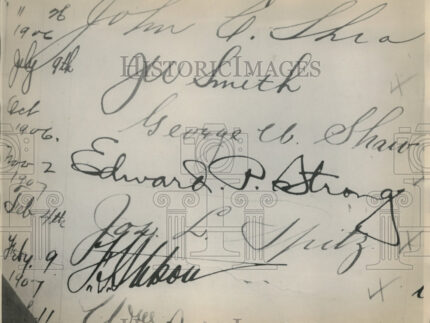 " 26 John C. Shea
1906
July 9th J W Smith
HISTORICIMAGES
Oct George W. Shaw
1906.
Nov 2 Edward. P. Strong
1907
Feb 4th Jas. L. Spitz
Feby. 9
1907